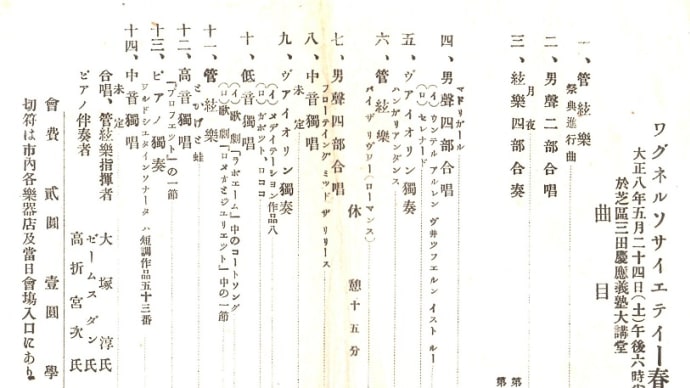 ワグネルソサイエテイー春
大正八年五月二十四日(土)午後六時
於芝區三田慶應義塾大講堂
曲目
一、管絃樂
祭典進行曲
二、男聲二部合唱
月夜
三、絃樂四部合奏
第
第
四、男聲四部合唱
マドリガール
(イ)ウンテル アルレン ヴ井ツフエルン イスト ルー
(ロ)セレナード
五、ヴアイオリン獨奏
ハンガリアンダンス
六、管絃樂
バイ ザ リヴワー(ローマンス)
休憩十五分
七、男聲四部合唱
フローテイング ミツド ザ リリース
八、中音獨唱
未定
九、ヴアイオリン獨奏
(イ)メデイテーション作品八
(ロ)ガボツト、ロココ
十、低音獨唱
(イ)歌劇「ラボエーム」中のコートソング
(ロ)歌劇「ロメオとジユリエツト」中の一節
十一、管絃樂
とかげと蛙
十二、高音獨唱
「プロフエツト」の一節
十三、ピアノ獨奏
ワルドシユタインソナータ ハ短調作品五十三番
十四、中音獨唱
未定
合唱、管絃樂指揮者 大塚淳氏
ピアノ伴奏者 ゼームスダン氏
高折宮次氏
會費 貳圓 壹圓 學
切符は市内各樂器店及當日會塲入口にあり